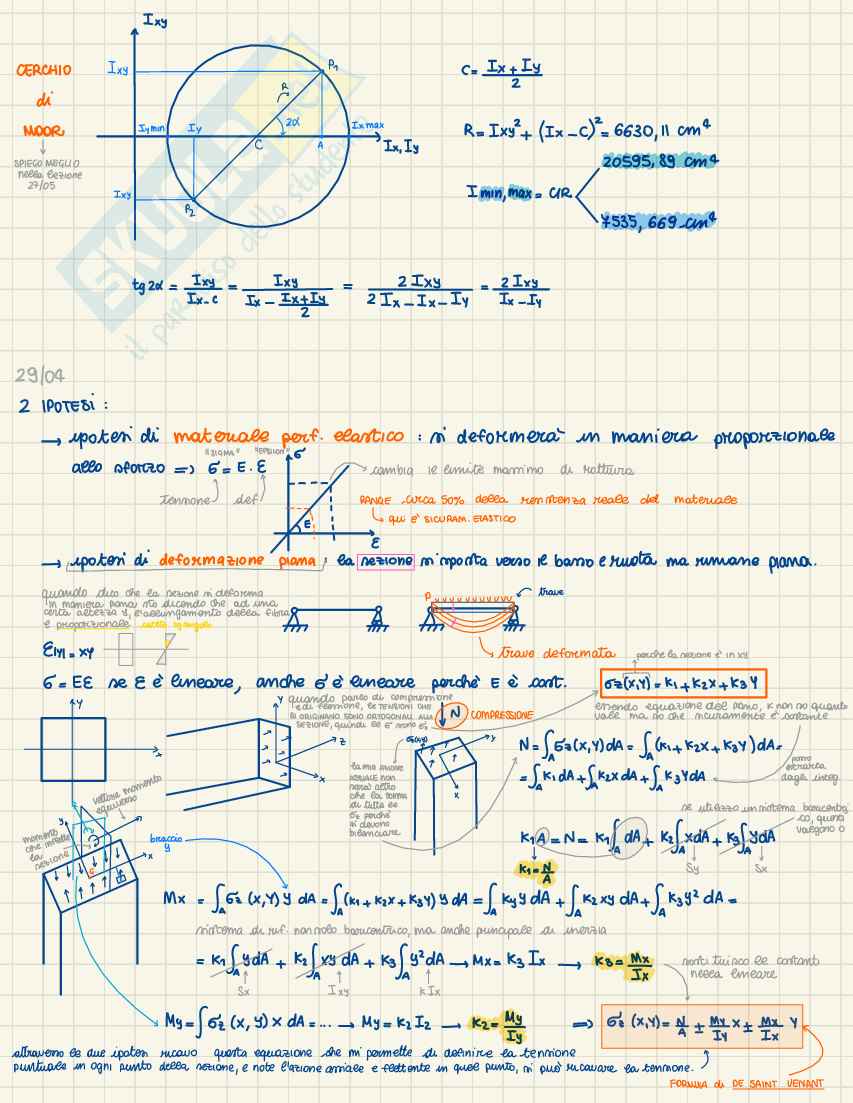 CERCHIO
di
MOOR
SPIEGO MEGLIO
nella lezione
27/05
Ixy
Ixy
P1
R
2α
Iy min
Iy
C
A
Ix max
Ix, Iy
Ixy
P2
C = Ix + Iy / 2
R = Ixy² + (Ix - C)² = 6630,11 cm⁴
20595,89 cm⁴
I min, max = C±R
7535,669 cm⁴
tg 2α = Ixy / Ix - C = Ixy / Ix - Ix + Iy / 2 = 2 Ixy / 2 Ix - Ix - Iy = 2 Ixy / Ix - Iy
SKUOLA
il paradiso dello studente
29/04
2 IPOTESI :
→ ipotesi di materiale perf. elastico : si deformerà in maniera proporzionale
allo sforzo => σ = E · ε
"SIGMA" "EPSILON"
tensione def
σ
E
ε
cambia il limite massimo di rottura
RANGE circa 50% della resistenza reale del materiale
↳ qui è SICURAM. ELASTICO
→ ipotesi di deformazione piana : la sezione si sposta verso il basso e ruota ma rimane piana.
quando dico che la sezione si deforma
in maniera piana sto dicendo che ad una
certa altezza y, l'allungamento della fibra
è proporzionale
P
trave
trave deformata
ε(y) = xy
σ = Eε se ε è lineare, anche σ è lineare perchè E è cost.
perchè la sezione è in xy
σz(x,y) = K1 + K2x + K3 y
essendo equazione del piano, K non so quanto
vale ma so che sicuramente è costante
quando parlo di compressione
e di tensione, le TENSIONI CHE
SI ORIGINANO SONO ORTOGONALI ALLA
SEZIONE, quindi le σ sono σz
N COMPRESSIONE
y
x
y
z
x
σz(x,y)
y
x
la mia azione
assiale non
sarà altro
che la somma
di tutte le
σz perchè
si devono
bilanciare
N = ∫A σz(x,y) dA = ∫A (K1 + K2x + K3y) dA =
= ∫A K1 dA + ∫A K2x dA + ∫A K3 y dA
posso
estrarla
dagli integ.
se utilizzo un sistema baricentri
co, questi
valgono 0
K1 A = N = K1 ∫A dA + K2 ∫A x dA + K3 ∫A y dA
Sy Sx
K1 = N / A
vettore momento
equiverso
momento
che inflette
la
sezione
y
x
G
braccio
y
Mx = ∫A σz (x,y) y dA = ∫A (K1 + K2x + K3y) y dA = ∫A K1 y dA + ∫A K2 xy dA + ∫A K3 y² dA =
sistema di rif. non solo baricentrico, ma anche principale di inerzia
= K1 ∫A y dA + K2 ∫A xy dA + K3 ∫A y² dA → Mx = K3 Ix → K3 = Mx / Ix
Sx Ixy KIx
sostituisco le costanti
nella lineare
My = ∫ σz (x,y) x dA = ... → My = K2 I2 → K2 = My / Iy => σz (x,y) = N / A ± My / Iy x ± Mx / Ix y
attraverso le due ipotesi ricavo questa equazione che mi permette di definire la tensione
puntuale in ogni punto della sezione, e note l'azione assiale e flettente in quel punto, si può ricavare la tensione.
FORMULA di DE SAINT VENANT